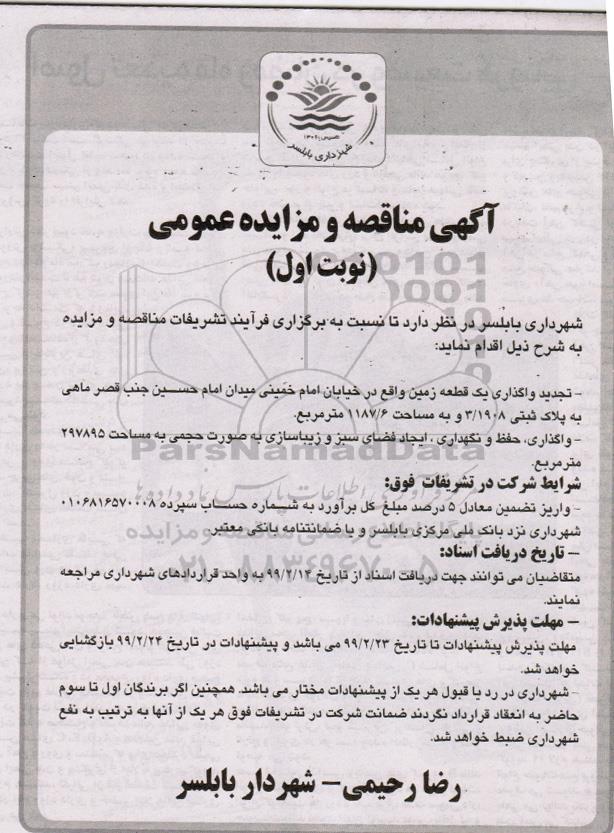 تاسیس ۱۳۰۶
شهرداری بابلسر
آگهی مناقصه و مزایده عمومی
(نوبت اول)
شهرداری بابلسر در نظر دارد تا نسبت به برگزاری فرآیند تشریفات مناقصه و مزایده
به شرح ذیل اقدام نماید:
- تجدید واگذاری یک قطعه زمین واقع در خیابان امام خمینی میدان امام حسین جنب قصر ماهی
به پلاک ثبتی ۳/۱۹۰۸ و به مساحت ۱۱۸۷/۶ مترمربع.
- واگذاری، حفظ و نگهداری ، ایجاد فضای سبز و زیباسازی به صورت حجمی به مساحت ۲۹۷۸۹۵
مترمربع.
شرایط شرکت در تشریفات فوق:
- واریز تضمین معادل ۵ درصد مبلغ کل برآورد به شماره حساب سپرده ۰۱۰۶۸۱۶۵۷۰۰۰۸
شهرداری نزد بانک ملی مرکزی بابلسر و یا ضمانتنامه بانکی معتبر
- تاریخ دریافت اسناد:
متقاضیان می توانند جهت دریافت اسناد از تاریخ ۹۹/۲/۱۴ به واحد قراردادهای شهرداری مراجعه
نمایند.
- مهلت پذیرش پیشنهادات:
مهلت پذیرش پیشنهادات تا تاریخ ۹۹/۲/۲۳ می باشد و پیشنهادات در تاریخ ۹۹/۲/۲۴ بازگشایی
خواهد شد.
- شهرداری در رد یا قبول هر یک از پیشنهادات مختار می باشد. همچنین اگر برندگان اول تا سوم
حاضر به انعقاد قرارداد نگردند ضمانت شرکت در تشریفات فوق هر یک از آنها به ترتیب به نفع
شهرداری ضبط خواهد شد.
رضا رحیمی- شهردار بابلسر
ParsNamadData
۰۲۱-۸۸۳۴۹۶۷۰-۵